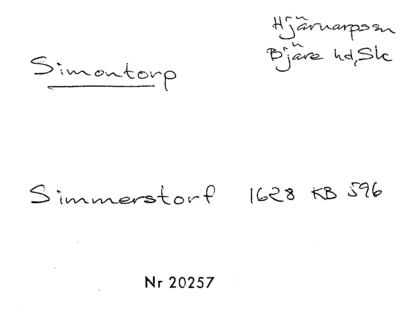 Hjärnarps sn
Bjäre hd, Sk
Simontorp
Simmerstorf 1628 KB 596
Nr 20257